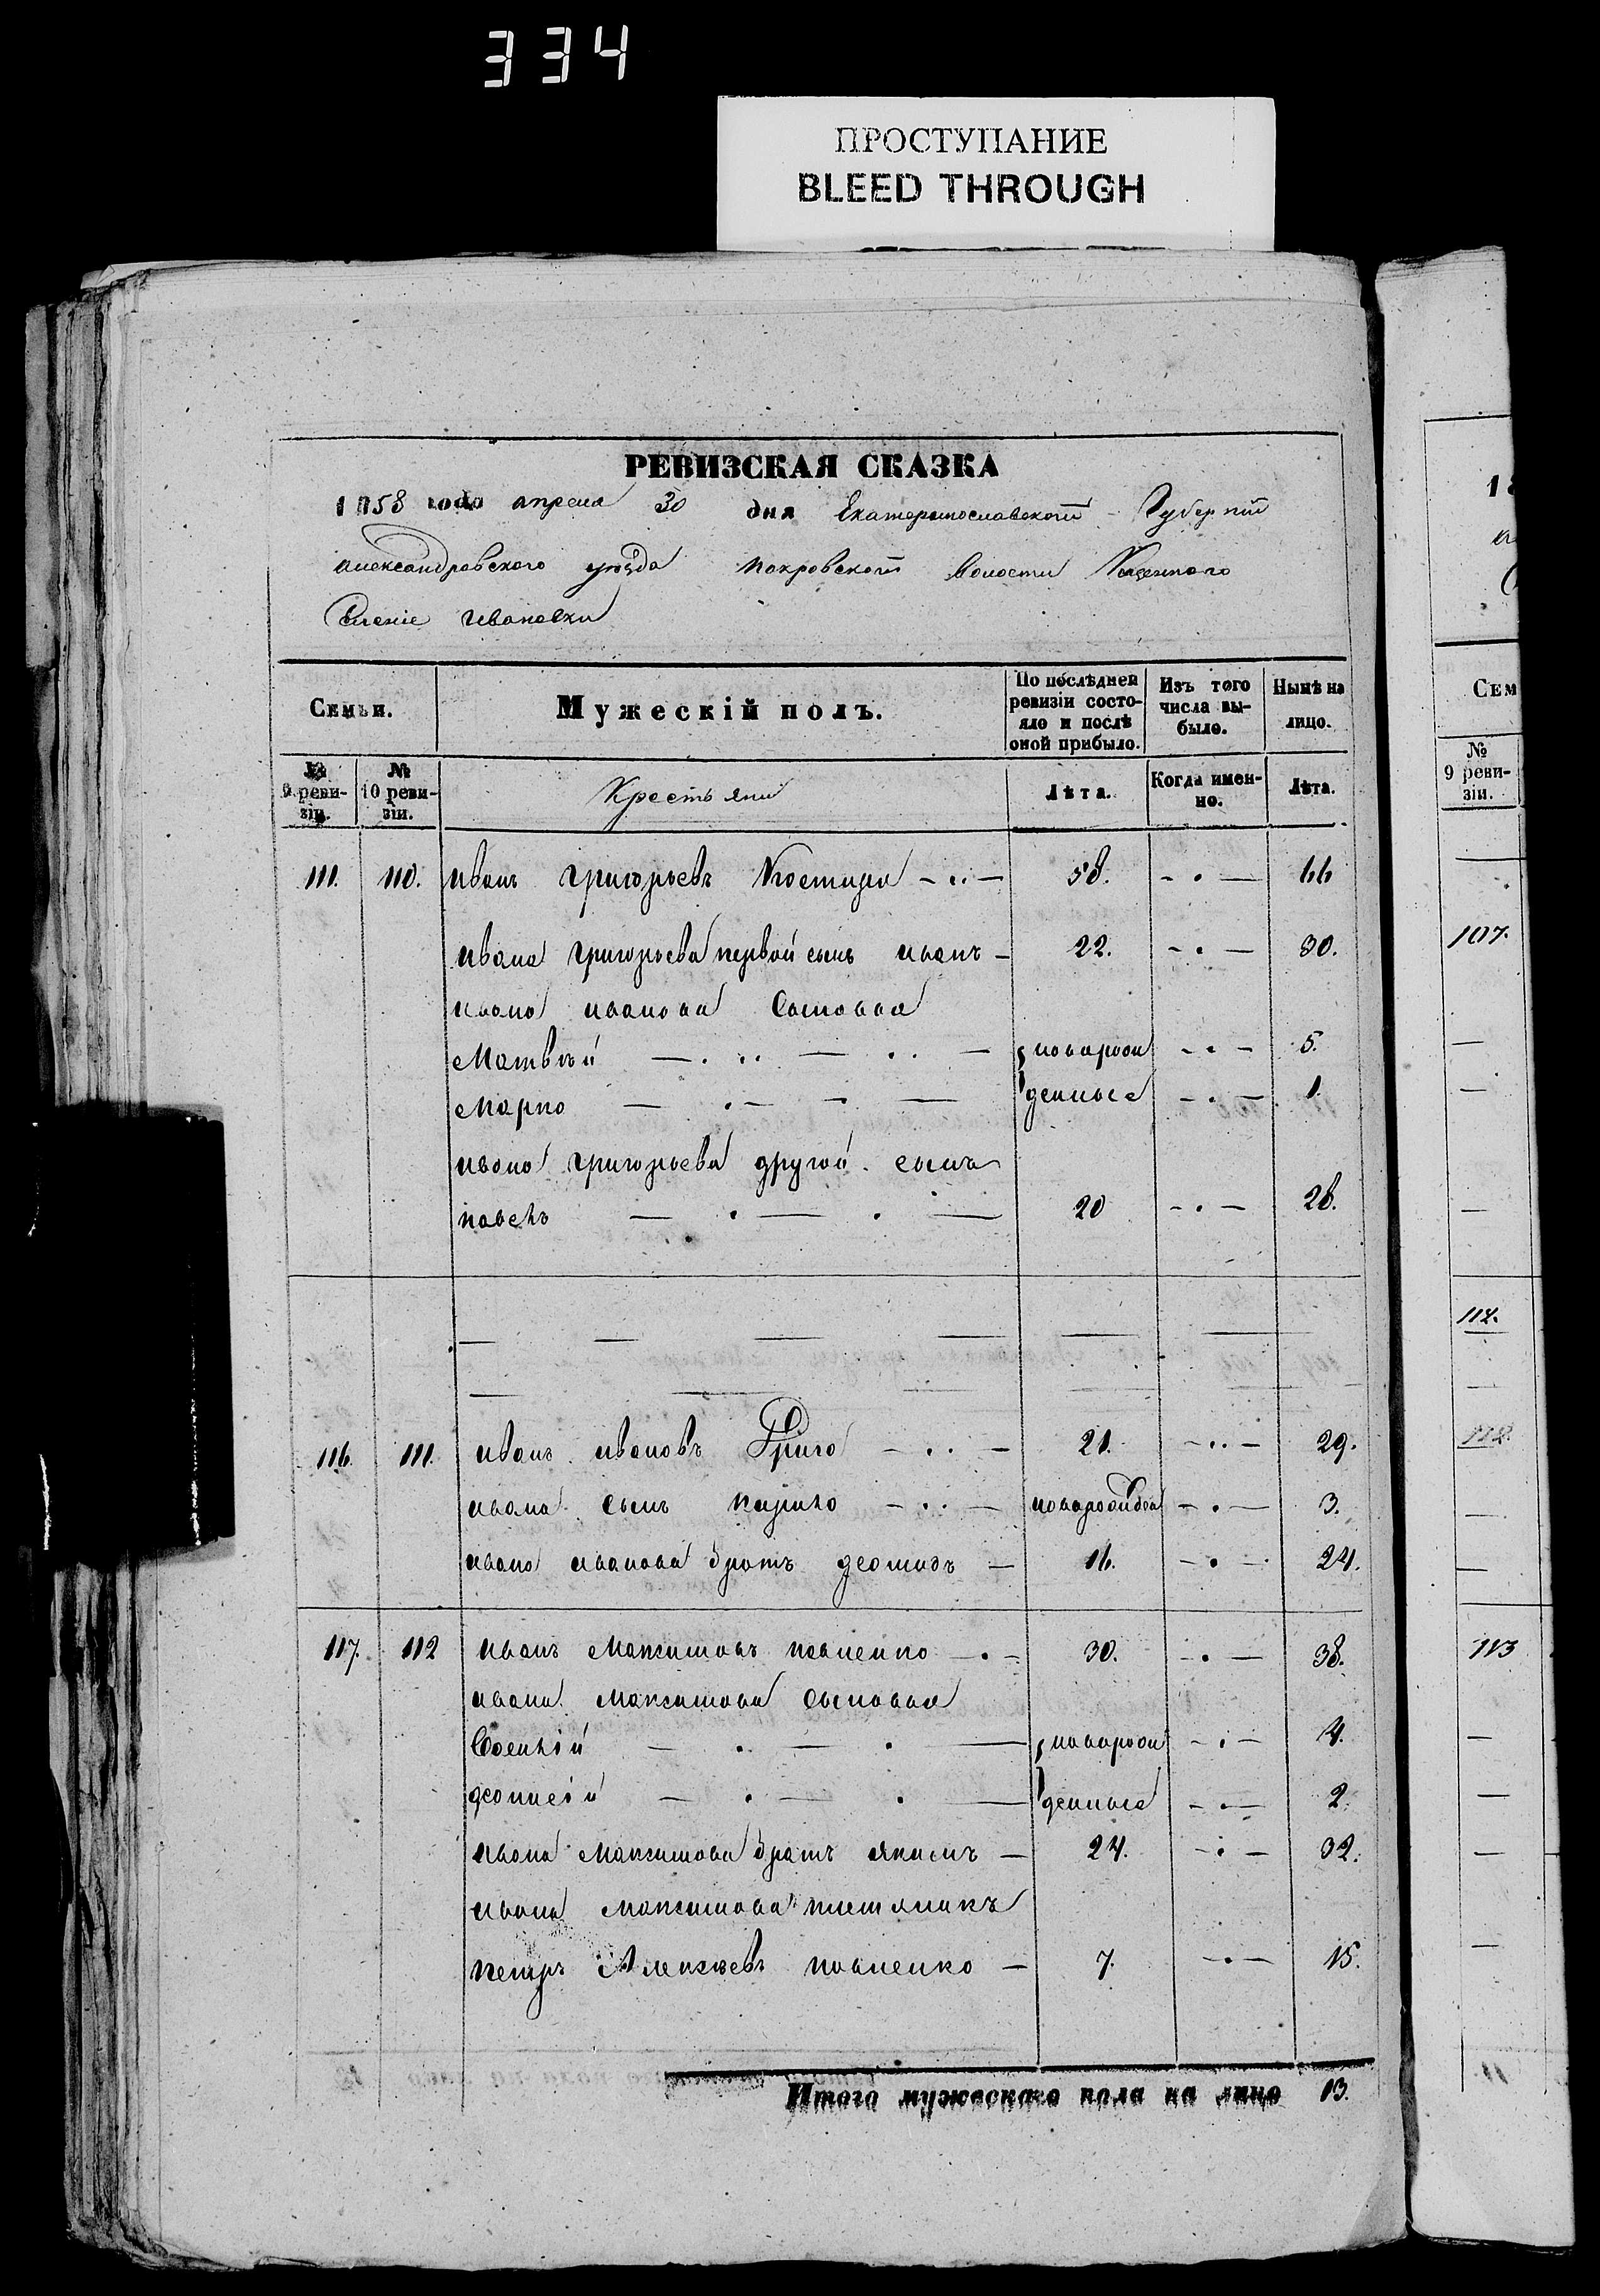 334
ПРОСТУПАНИЕ
BLEED THROUGH
РЕВИЗСКАЯ СКАЗКА
1858 года апреля 30 дня Екатеринославской Губерніи
александровского уѣзда покровской волости Казенного
Селеніе Ивановки
Семьи.
Мужескій полъ.
По послѣдней ревизіи состояло и послѣ оной прибыло.
Изъ того числа выбыло.
Нынѣ на лицо.
№ 9 ревизіи.
№ 10 ревизіи.
Крестьяни
Лѣта.
Когда именно.
Лѣта.
111. 110. иванъ григорьевъ Костыра 58. 66
ивана григорьева первой сынъ иванъ 22. 30.
ивана иванова Сыновья
Матвѣй новорож 5.
Марко денные 1.
ивана григорьева другой сынъ
павелъ 20 28.
116. 111. иванъ ивановъ 21. 29.
ивана сынъ кирило новорожден 3.
ивана иванова братъ 16. 24.
117. 112 иванъ Максимовъ 30. 38.
ивана Максимова сыновья
новорож 4.
денные 2.
ивана Максимова братъ якимъ 24. 32.
ивана Максимова племяникъ
петръ Алексѣевъ 7. 15.
Итого мужескаго пола на лицо 13.
Сем
№ 9 реви-зіи.
107.
112.
113